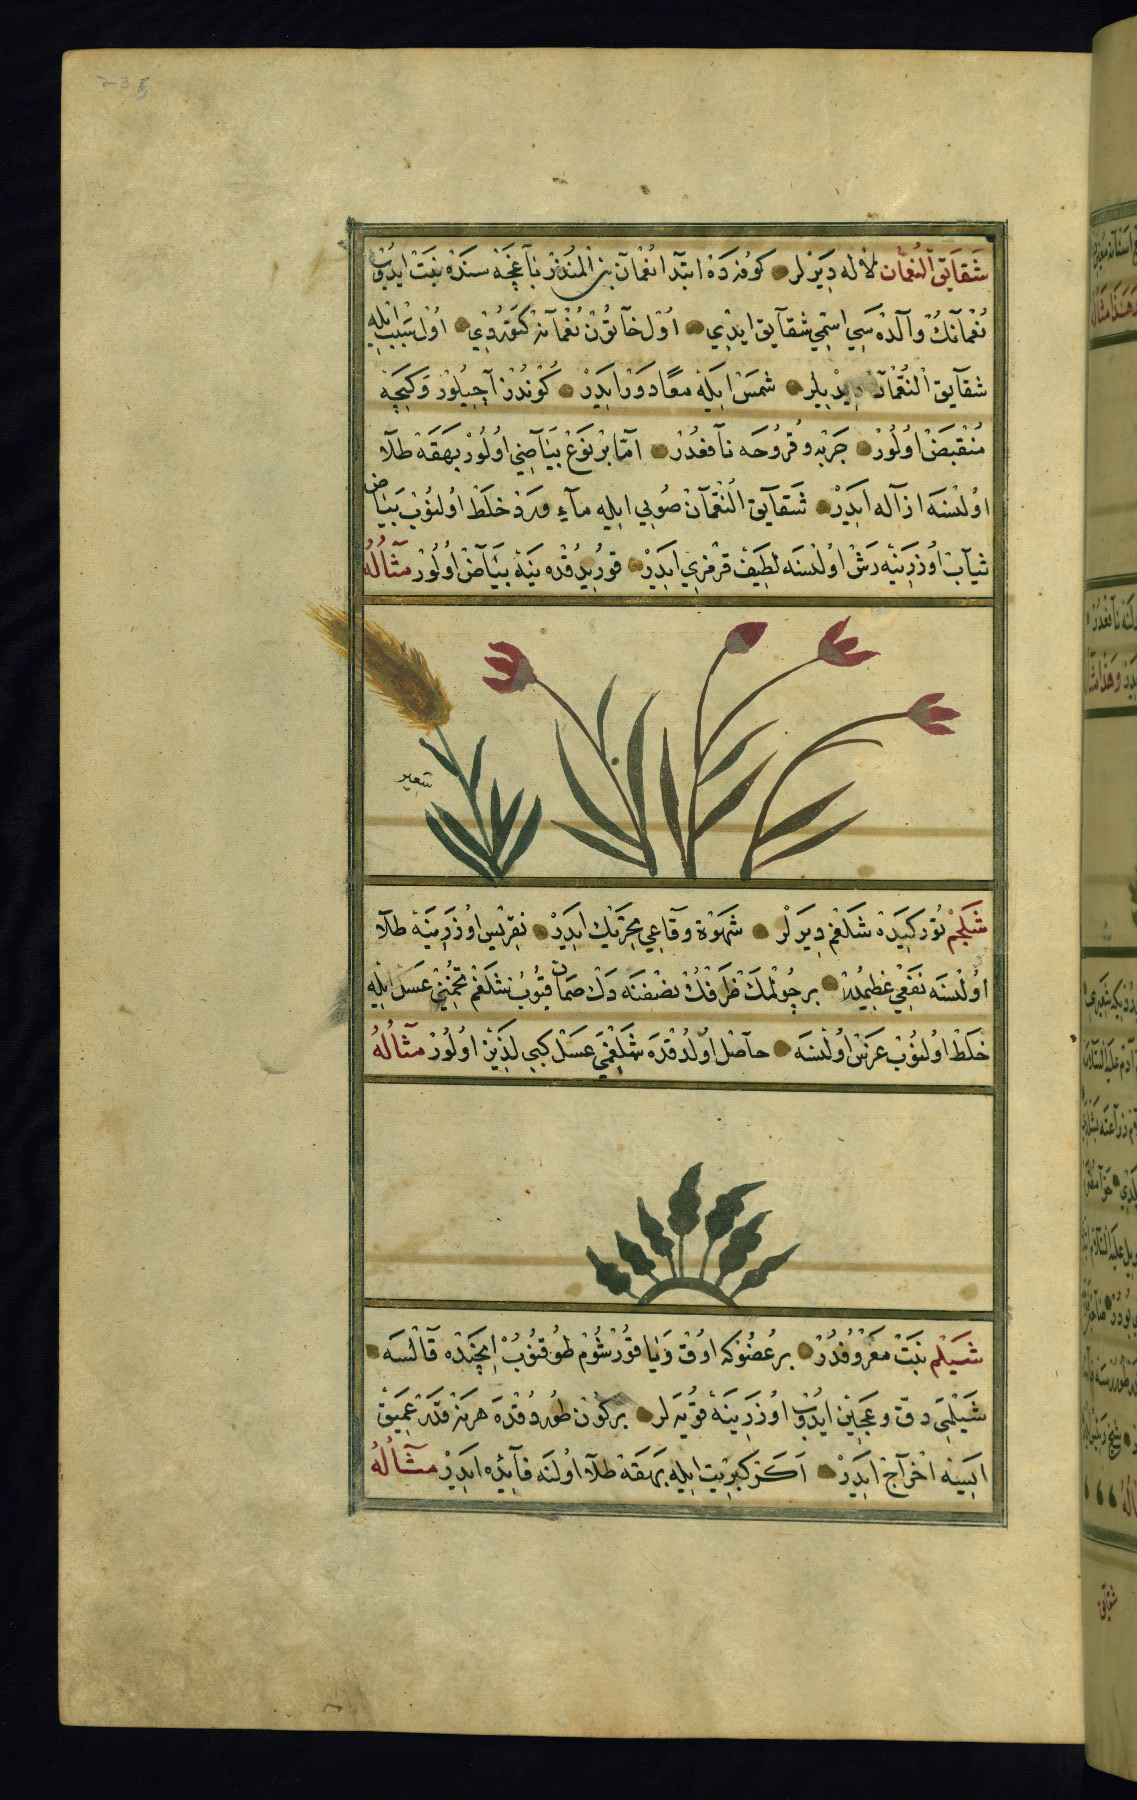 شَقَايَقِ النُّعْمَانْ لَالَه دِيَرْلَر كُوفَه دَه ابتدَا نُعْمَانْ بن الْمُنْذِرْ بَاغْچَه سِنْدَه بِنَتْ ايدُوبْ
نُعْمَانِكْ وَالِدَه سِي اِسْمِي شَقَايِقْ ايدِي اُولْ خَاتُونْ نُعْمَانَه كَتُورْدِي اُولْ سَبَبْ ايلَه
شقَايق النُّعْمَانْ دِيدِيلَر شَمْس ايلَه مَعًا دَوْر ايدَرْ كُونْدُزْ آچِيلُورْ وَكِيجَه
مُنْقَبِضْ اُولُورْ جَرَبَه و قُرُوحَه نَافِعْدُرْ اَمَّا بِرْ نَوْعْ بَيَاضِي اُولُورْ بَهَقَه طلَا
اولنسَه ازَالَه ايدَرْ شقَايق النُّعْمَانْ صُويِي ايلَه مَاءِ وَرَدْ خَلْط اولنُوبْ بَيَاض
ثِيَابْ اوزَرِينَه رَشْ اولنسَه لَطِيفْ قِرْمِزِي ايدَرْ قورُيدُقْدَه يِنَه بَيَاضْ اُولُورْ مثَالُهُ
شعير
شَلْجَمْ تُورْكِيدَه شَلْغَمْ دِيرَلَرْ شَهْوَة وقَاعِي تَحْرِيكْ ايدَرْ نِقْرِيسْ اوزَرِينَه طِلَا
اولنسَه نَفْعِي عَظِيمْدُر بر چُولْمَكْ ظَرْفِكْ نِصْفِنَه دَكْ صَمَانْ قيُوبْ شَلْغَمْ تُخْمِينِي عَسَلْ ايلَه
خَلْط اولنُوبْ غَرْسْ اولنسَه حَاصِل اُولدُقْدَه شَلْغَمِي عَسَلْ كِبِي لَذِيذْ اُولُورْ مثَالُهُ
شَيْلَمْ نَبَتْ مَعْرُوفْدُرْ بر عُضُوْكَه اوُقْ وَيَا قورْشُومْ طوقنُوبْ ايچِنْدَه قَالسَه
شَيْلَمِي دقّ و عَجِينْ ايدُوبْ اوزَرِينَه قُويَه لَر بر كُونْ طوردُقْدَه هَرْ نَه قَدَرْ عَمِيقْ
ايسَه اخْرَاجْ ايدَرْ اكَرْ كِبْرِيتْ ايلَه بَهَقَه طلَا اولنَه فَائِدَه ايدَرْ مثَالُهُ